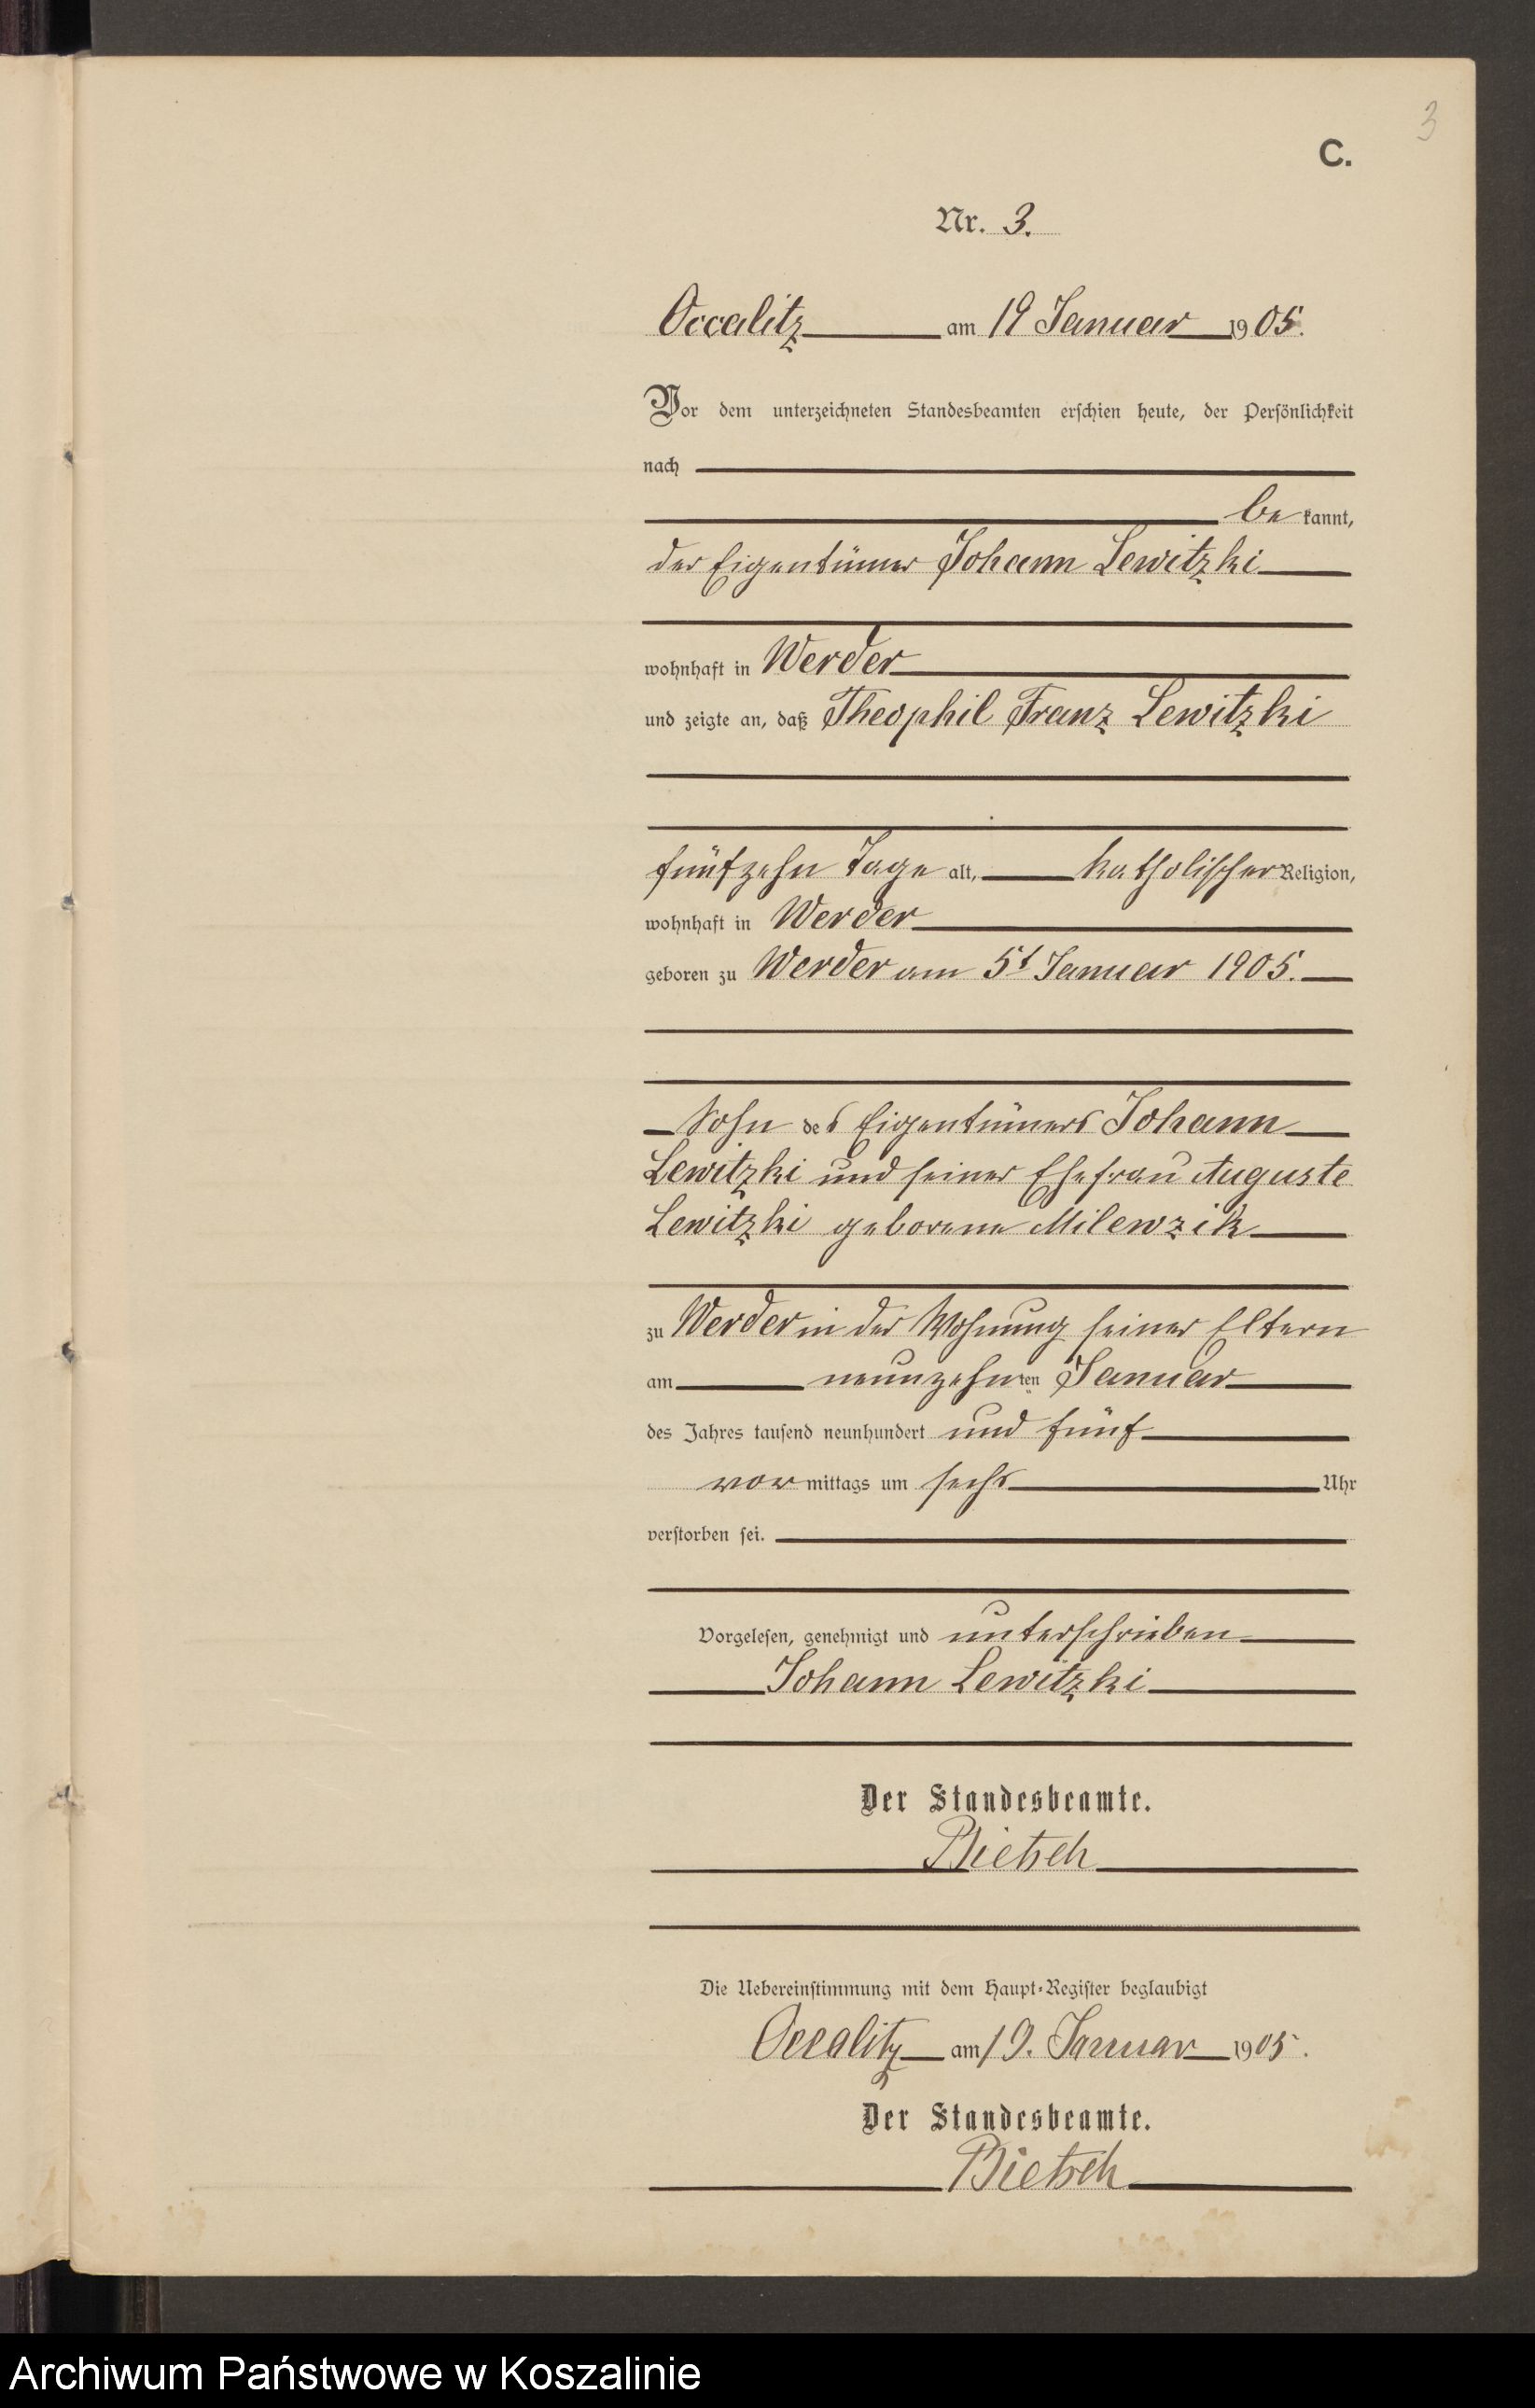 3
C.
Nr. 3.
Occalitz am 19 Januar 1905.
Vor dem unterzeichneten Standesbeamten erschien heute, der Persönlichkeit
nach
be kannt,
der Eigentümer Johann Lewitzki
wohnhaft in Werder
und zeigte an, daß Theophil Franz Lewitzki
fünfzehn Tage alt, katholischer Religion,
wohnhaft in Werder
geboren zu Werder am 5t Januar 1905.
Sohn des Eigentümers Johann
Lewitzki und seiner Ehefrau Auguste
Lewitzki geborene Milewzik
zu Werder in der Wohnung seiner Eltern
am neunzehnten Januar
des Jahres tausend neunhundert und fünf
vormittags um sechs Uhr
verstorben sei.
Vorgelesen, genehmigt und unterschrieben
Johann Lewitzki
Der Standesbeamte.
Bietsch
Die Uebereinstimmung mit dem Haupt-Register beglaubigt
Occalitz am 19. Januar 1905.
Der Standesbeamte.
Bietsch
Archiwum Państwowe w Koszalinie